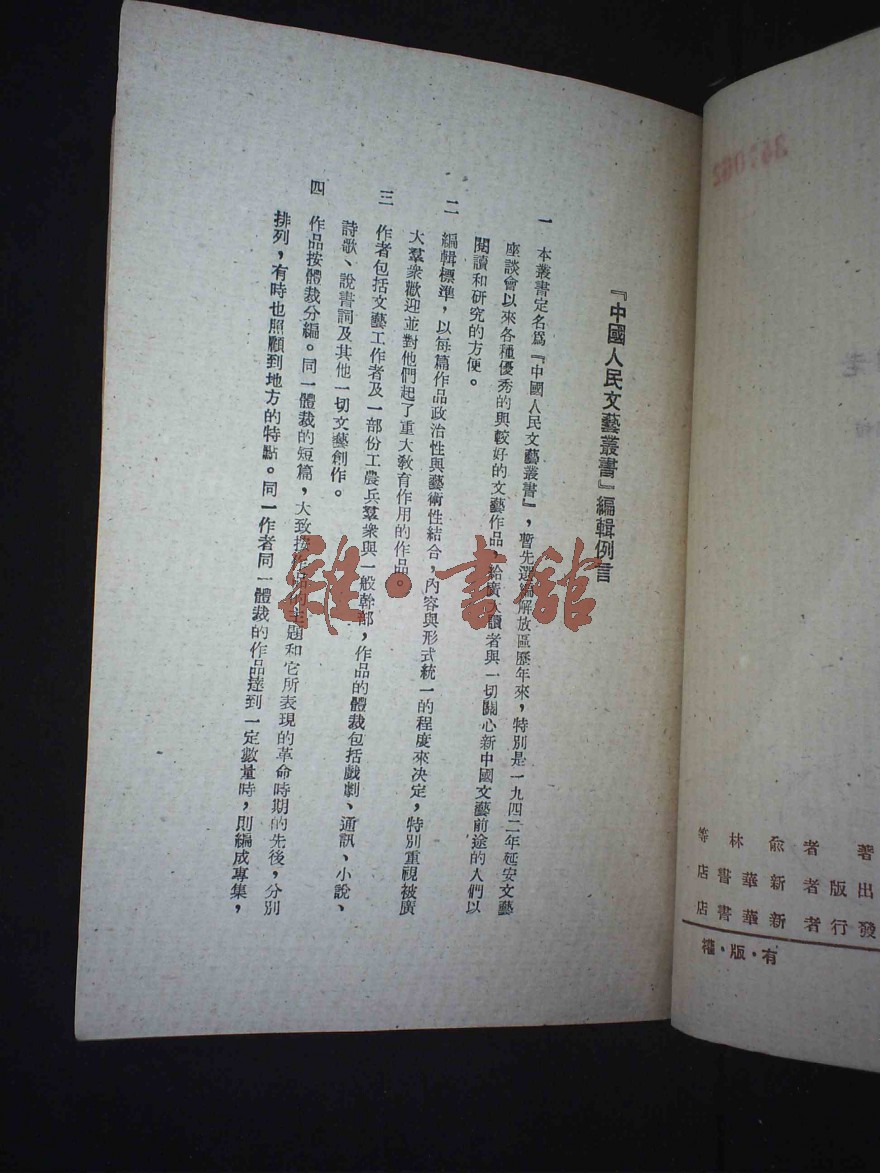 『中國人民文藝叢書』編輯例言
一　本叢書定名爲『中國人民文藝叢書』，暫先選編解放區歷年來，特別是一九四二年延安文藝
座談會以來各種優秀的與較好的文藝作品，給廣大讀者與一切關心新中國文藝前途的人們以
閱讀和研究的方便。
二　編輯標準，以每篇作品政治性與藝術性結合，內容與形式統一的程度來決定，特別重視被廣
大羣衆歡迎並對他們起了重大教育作用的作品。
三　作者包括文藝工作者及一部份工農兵羣衆與一般幹部，作品的體裁包括戲劇、通訊、小說、
詩歌、說書詞及其他一切文藝創作。
四　作品按體裁分編。同一體裁的短篇，大致按作品的主題和它所表現的革命時期的先後，分別
排列，有時也照顧到地方的特點。同一作者同一體裁的作品達到一定數量時，則編成專集，
雜·書館
老
等林兪者著
店書華新者版出
店書華新者行發
權·版·有